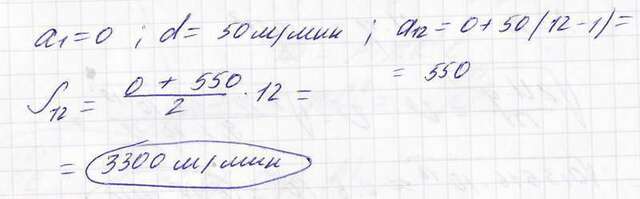 a₁ = 0 ; d = 50 м/мин ; a₁₂ = 0 + 50(12 - 1) =
= 550
S₁₂ = (0 + 550)/2 · 12 =
= 3300 м/мин